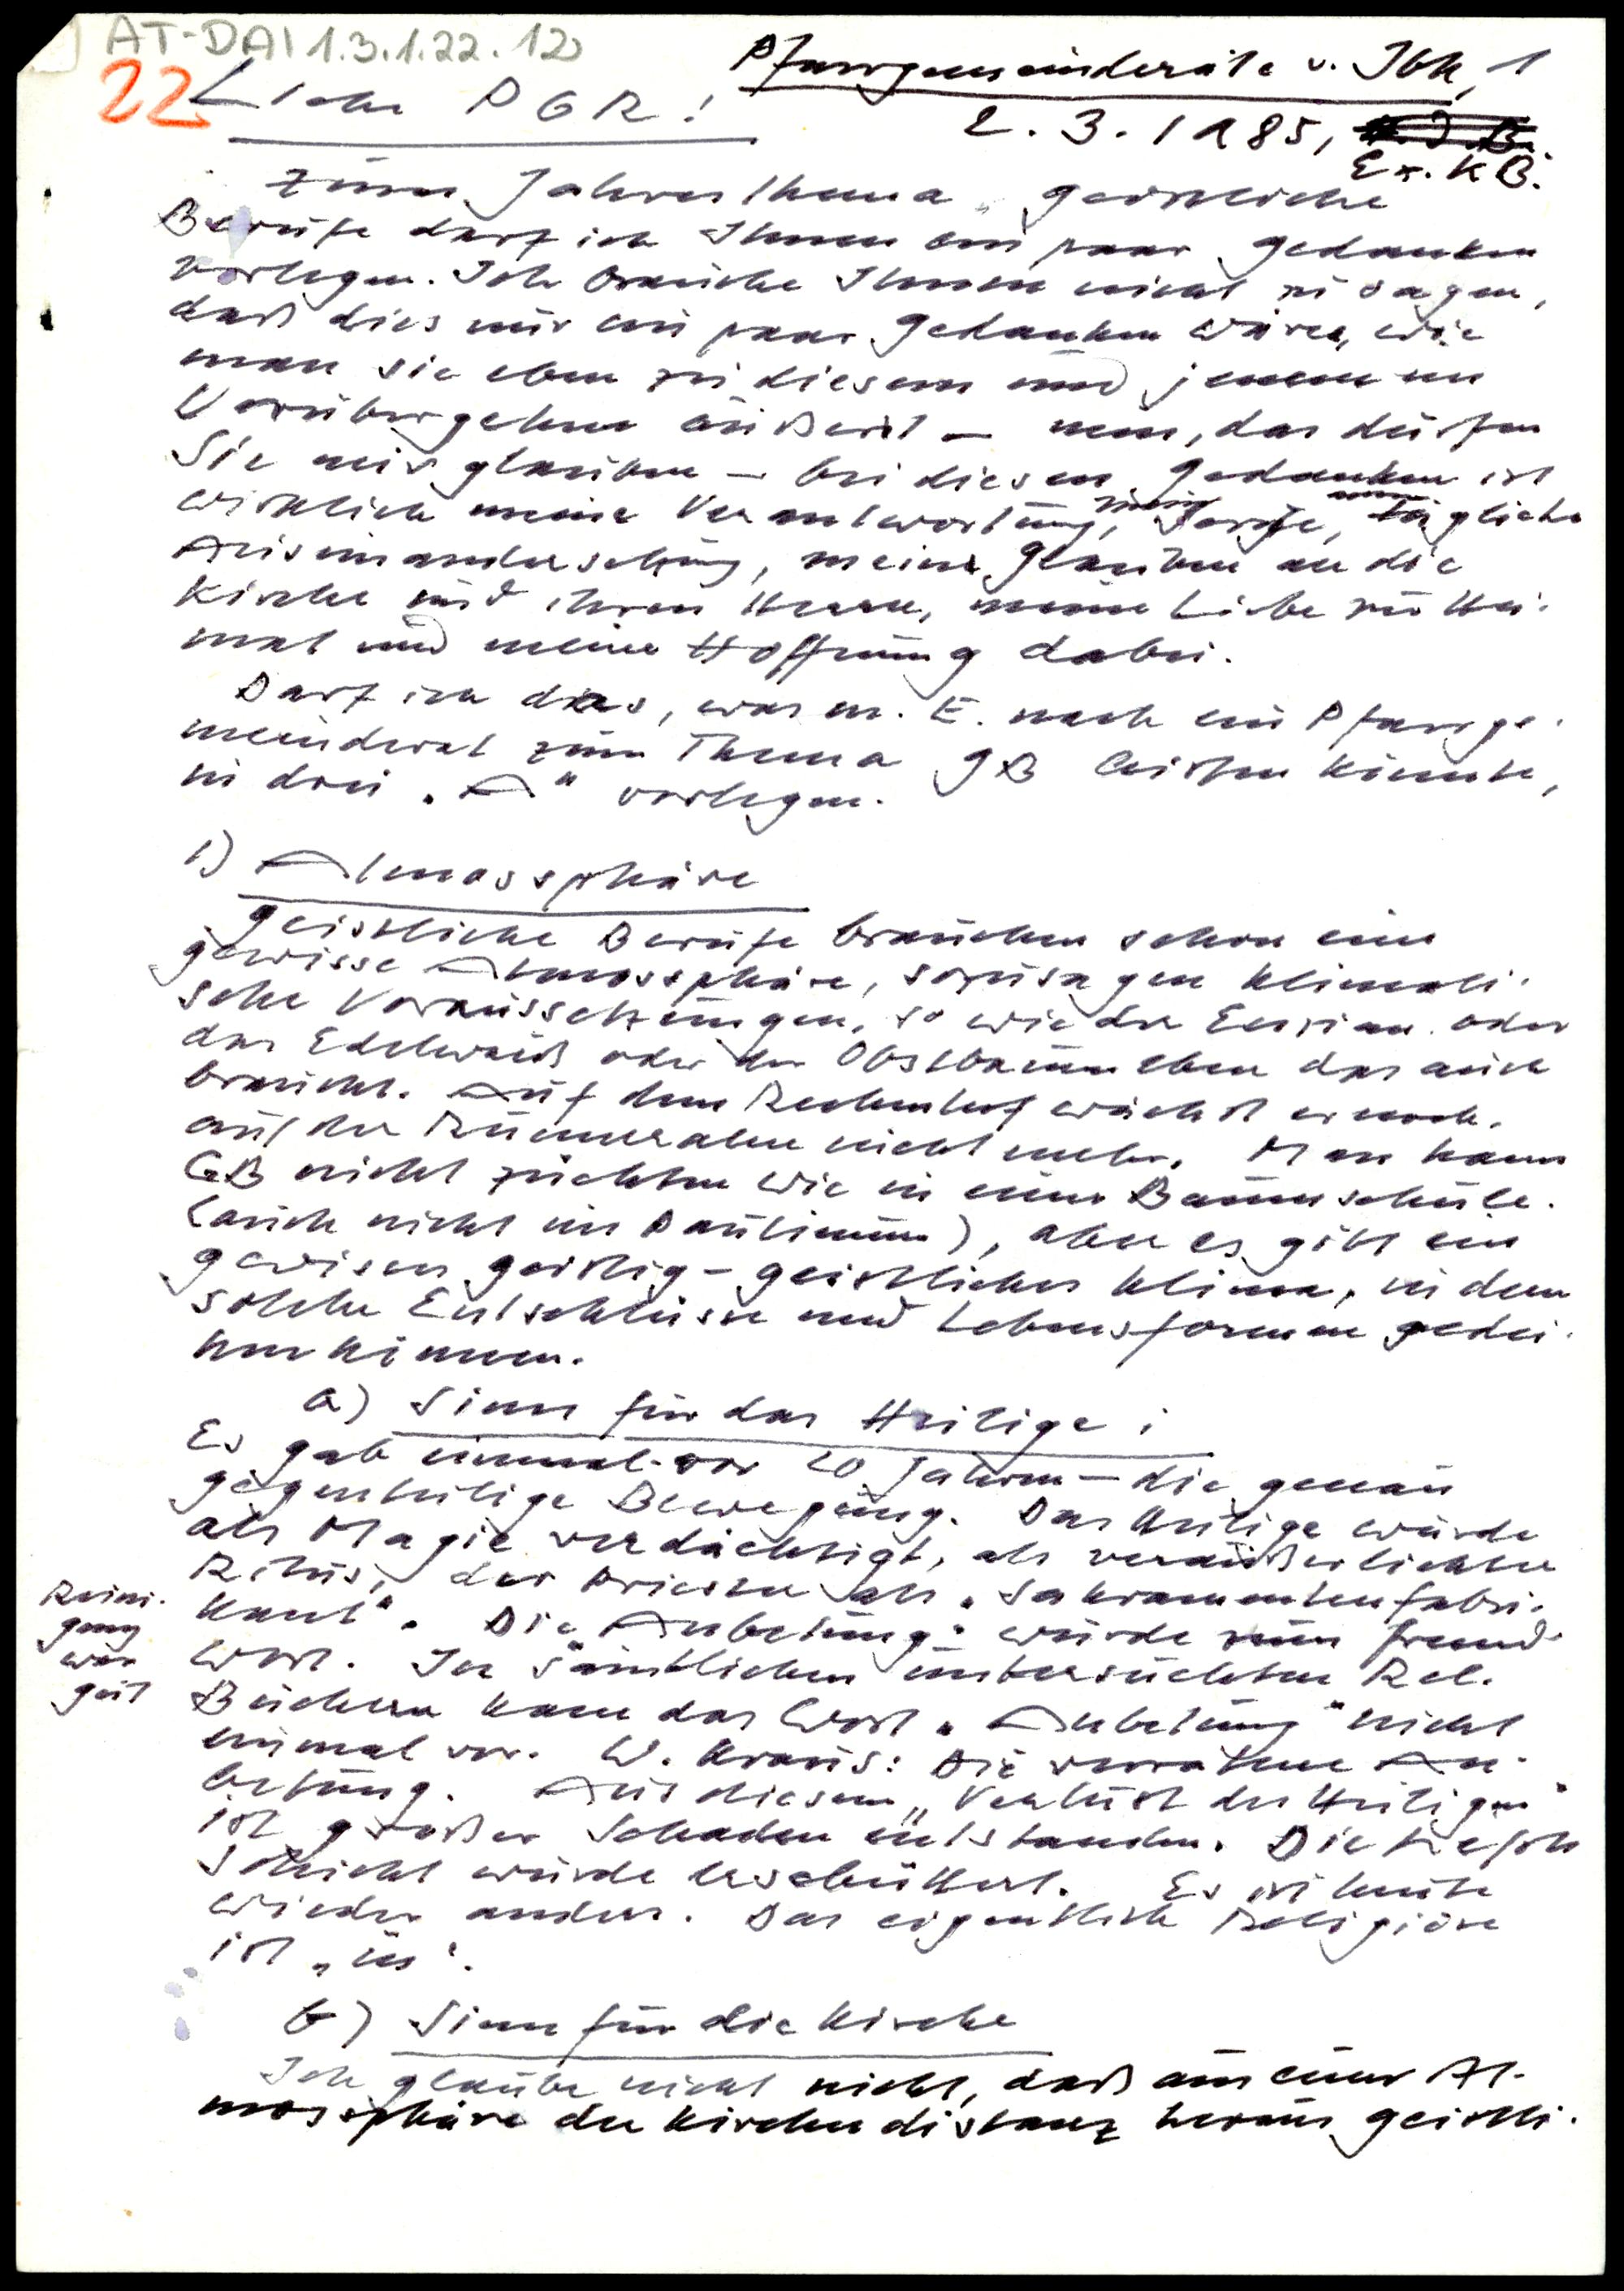 AT-DAI 1.3.1.22.12
22
Pfarrgemeinderäte v. Ibk, 1
2.3.1985,
Ex. K B.
Liebe PGR!
Zum Jahresthema geistliche
Berufe darf ich Ihnen ein paar Gedanken
vorlegen. Ich brauche Ihnen nicht zu sagen,
daß dies nur ein paar Gedanken wären, wie
man sie eben zu diesem und jenem im
Vorübergehen äußert – nein, das dürfen
Sie mir glauben – bei diesen Gedanken ist
wirklich meine Verantwortung, meine Sorge, tägliche
Auseinandersetzung, meine Glauben an die
Kirche und ihren Herrn, meine Liebe zur Hei-
mat und meine Hoffnung dabei.
Darf ich das, was m. E. nach ein Pfarrge-
meinderat zum Thema GB leisten könnte,
in drei „A“ vorlegen.
1) Atmossphäre
Geistliche Berufe brauchen schon eine
gewisse Atmossphäre, sozusagen klimati-
sche Voraussetzungen, so wie der Enzian oder
das Edelweiß oder der Obstbaum eben das auch
braucht. Auf dem Rechenhof wächst er noch,
auf der Rumeralm nicht mehr. Man kann
GB nicht züchten wie in einer Baumschule.
(auch nicht im Paulinum), aber es gibt ein
gewisses geistig-geistliches Klima, in dem
solche Entschlüsse und Lebensformen gedei-
hen können.
a) Sinn für das Heilige:
Es gab einmal – vor 20 Jahren – die genau
gegenteilige Bewegung. Das Heilige wurde
als Magie verdächtigt, als veräußerlichter
Ritus, der Priester als „Sakramentenfabri-
kant“. Die „Anbetung“ wurde zum Fremd-
wort. In sämtlichen untersuchten Rel.
Büchern kam das Wort „Anbetung“ nicht
einmal vor. W. Kraus: Die verratene An-
betung. Aus diesem „Verlust des Heiligen“
ist großer Schaden entstanden. Die Tiefen
schicht wurde erschüttert. Es ist heute
wieder anders. Das eigentlich Religiöse
ist „in“.
Reini-
gung
war
gut
b) Sinn für die Kirche
Ich glaube nicht nicht, daß aus einer At-
mossphäre der Kirchendistanz heraus geistli-